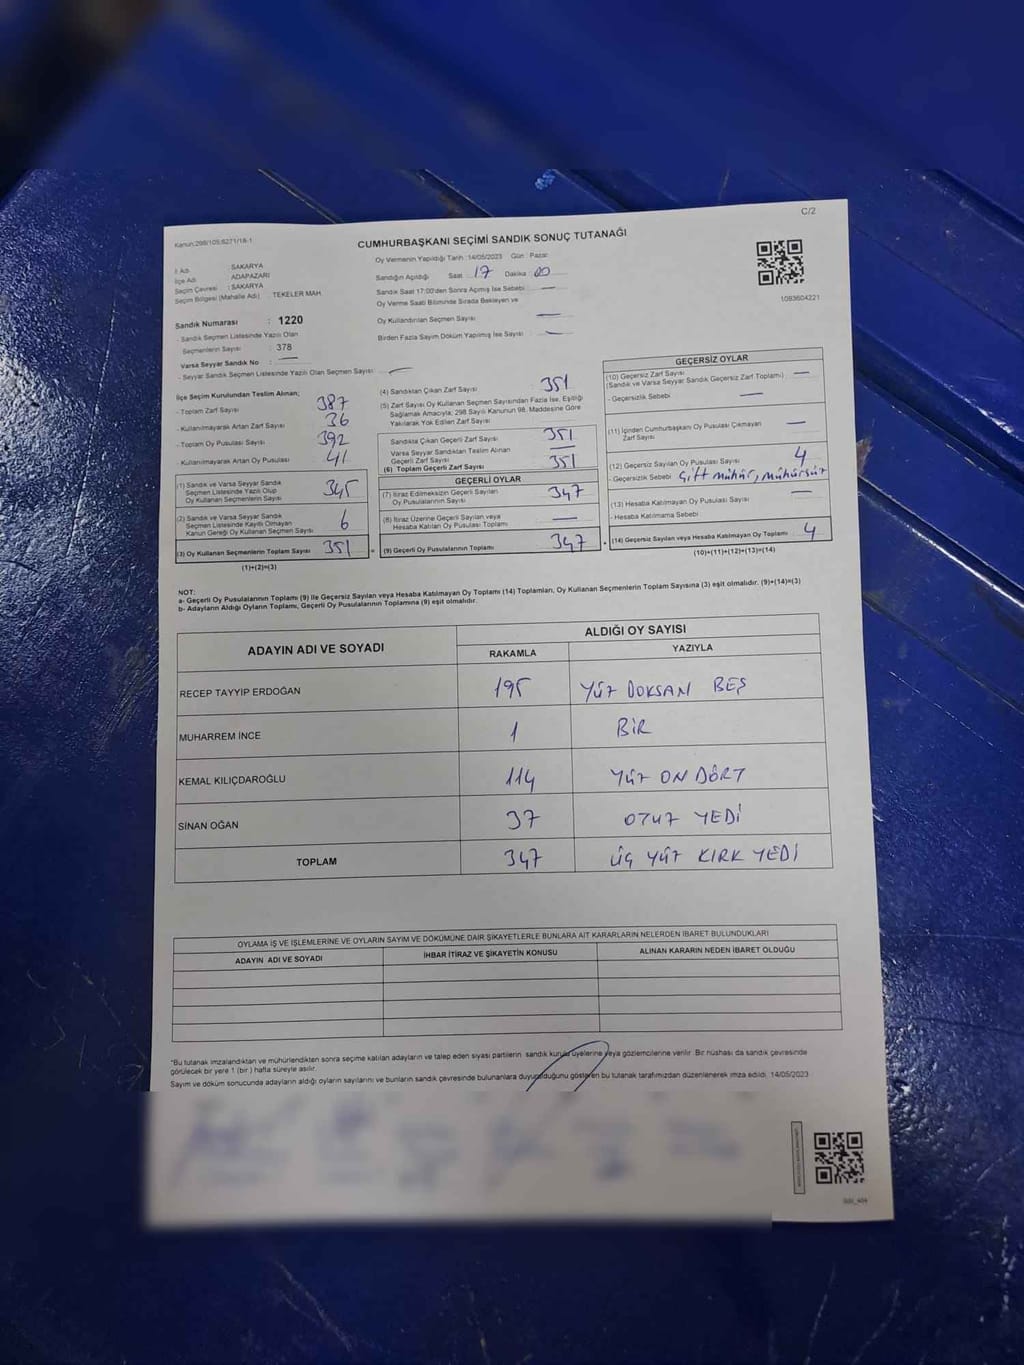 C/2
Kanun:298/105;6271/18-1
CUMHURBAŞKANI SEÇİMİ SANDIK SONUÇ TUTANAĞI
İl Adı : SAKARYA
İlçe Adı : ADAPAZARI
Seçim Çevresi : SAKARYA
Seçim Bölgesi (Mahalle Adı) : TEKELER MAH.
Sandık Numarası : 1220
- Sandık Seçmen Listesinde Yazılı Olan
Seçmenlerin Sayısı : 378
Varsa Seyyar Sandık No : —
- Seyyar Sandık Seçmen Listesinde Yazılı Olan Seçmen Sayısı : —
Oy Vermenin Yapıldığı Tarih :14/05/2023 Gün : Pazar
Sandığın Açıldığı Saat : 17 Dakika : 00
Sandık Saat 17:00'den Sonra Açılmış İse Sebebi : —
Oy Verme Saati Bitiminde Sırada Bekleyen ve
Oy Kullandırılan Seçmen Sayısı : —
Birden Fazla Sayım Döküm Yapılmış İse Sayısı : —
1093604221
İlçe Seçim Kurulundan Teslim Alınan;
- Toplam Zarf Sayısı 387
- Kullanılmayarak Artan Zarf Sayısı 36
- Toplam Oy Pusulası Sayısı 392
- Kullanılmayarak Artan Oy Pusulası 41
(1) Sandık ve Varsa Seyyar Sandık
Seçmen Listesinde Yazılı Olup
Oy Kullanan Seçmenlerin Sayısı 345
(2) Sandık ve Varsa Seyyar Sandık
Seçmen Listesinde Kayıtlı Olmayan
Kanun Gereği Oy Kullanan Seçmen Sayısı 6
(3) Oy Kullanan Seçmenlerin Toplam Sayısı 351 =
(1)+(2)=(3)
(4) Sandıktan Çıkan Zarf Sayısı 351
(5) Zarf Sayısı Oy Kullanan Seçmen Sayısından Fazla İse, Eşitliği
Sağlamak Amacıyla; 298 Sayılı Kanunun 98. Maddesine Göre
Yakılarak Yok Edilen Zarf Sayısı
Sandıkta Çıkan Geçerli Zarf Sayısı 351
Varsa Seyyar Sandıktan Teslim Alınan
Geçerli Zarf Sayısı —
(6) Toplam Geçerli Zarf Sayısı 351
GEÇERLİ OYLAR
(7) İtiraz Edilmeksizin Geçerli Sayılan
Oy Pusulalarının Sayısı 347
(8) İtiraz Üzerine Geçerli Sayılan veya
Hesaba Katılan Oy Pusulası Toplamı —
(9) Geçerli Oy Pusulalarının Toplamı 347 +
GEÇERSİZ OYLAR
(10) Geçersiz Zarf Sayısı —
(Sandık ve Varsa Seyyar Sandık Geçersiz Zarf Toplamı)
- Geçersizlik Sebebi —
(11) İçinden Cumhurbaşkanı Oy Pusulası Çıkmayan
Zarf Sayısı —
(12) Geçersiz Sayılan Oy Pusulası Sayısı 4
- Geçersizlik Sebebi Çift mühür, mühürsüz
(13) Hesaba Katılmayan Oy Pusulası Sayısı —
- Hesaba Katılmama Sebebi
(14) Geçersiz Sayılan veya Hesaba Katılmayan Oy Toplamı 4
(10)+(11)+(12)+(13)=(14)
NOT:
a- Geçerli Oy Pusulalarının Toplamı (9) ile Geçersiz Sayılan veya Hesaba Katılmayan Oy Toplamı (14) Toplamları, Oy Kullanan Seçmenlerin Toplam Sayısına (3) eşit olmalıdır. (9)+(14)=(3)
b- Adayların Aldığı Oyların Toplamı, Geçerli Oy Pusulalarının Toplamına (9) eşit olmalıdır.
ADAYIN ADI VE SOYADI
ALDIĞI OY SAYISI
RAKAMLA YAZIYLA
RECEP TAYYIP ERDOĞAN 195 YÜZ DOKSAN BEŞ
MUHARREM İNCE 1 BİR
KEMAL KILIÇDAROĞLU 114 YÜZ ON DÖRT
SİNAN OĞAN 37 OTUZ YEDİ
TOPLAM 347 ÜÇ YÜZ KIRK YEDİ
OYLAMA İŞ VE İŞLEMLERİNE VE OYLARIN SAYIM VE DÖKÜMÜNE DAİR ŞİKAYETLERLE BUNLARA AİT KARARLARIN NELERDEN İBARET BULUNDUKLARI
ADAYIN ADI VE SOYADI İHBAR İTİRAZ VE ŞİKAYETİN KONUSU ALINAN KARARIN NEDEN İBARET OLDUĞU
*Bu tutanak imzalandıktan ve mühürlendikten sonra seçime katılan adayların ve talep eden siyasi partilerin sandık kurulu üyelerine veya gözlemcilerine verilir. Bir nüshası da sandık çevresinde
görülecek bir yere 1 (bir) hafta süreyle asılır.
Sayım ve döküm sonucunda adayların aldığı oyların sayılarını ve bunların sandık çevresinde bulunanlara duyurulduğunu gösteren bu tutanak tarafımızdan düzenlenerek imza edildi. 14/05/2023